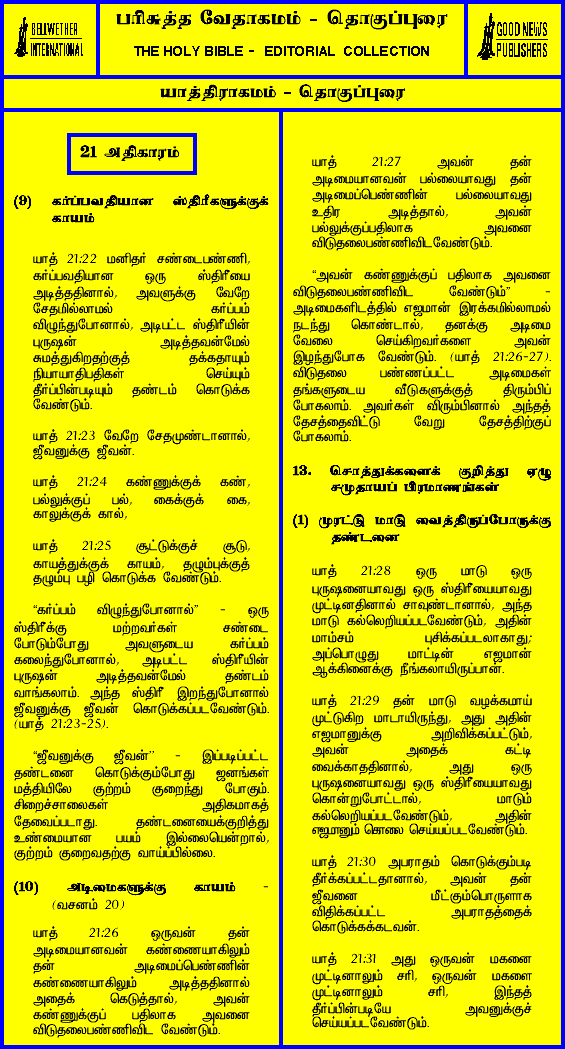 BELLWETHER
INTERNATIONAL
பரிசுத்த வேதாகமம் - தொகுப்புரை
THE HOLY BIBLE - EDITORIAL COLLECTION
GOOD NEWS
PUBLISHERS
யாத்திராகமம் - தொகுப்புரை
21 அதிகாரம்
(9) கர்ப்பவதியான ஸ்திரீகளுக்குக்
காயம்
யாத் 21:22 மனிதர் சண்டைபண்ணி,
கர்ப்பவதியான ஒரு ஸ்திரீயை
அடித்ததினால், அவளுக்கு வேறே
சேதமில்லாமல் கர்ப்பம்
விழுந்துபோனால், அடிபட்ட ஸ்திரீயின்
புருஷன் அடித்தவன்மேல்
சுமத்துகிறதற்குத் தக்கதாயும்
நியாயாதிபதிகள் செய்யும்
தீர்ப்பின்படியும் தண்டம் கொடுக்க
வேண்டும்.
யாத் 21:23 வேறே சேதமுண்டானால்,
ஜீவனுக்கு ஜீவன்.
யாத் 21:24 கண்ணுக்குக் கண்,
பல்லுக்குப் பல், கைக்குக் கை,
காலுக்குக் கால்,
யாத் 21:25 சூட்டுக்குச் சூடு,
காயத்துக்குக் காயம், தழும்புக்குத்
தழும்பு பழி கொடுக்க வேண்டும்.
“கர்ப்பம் விழுந்துபோனால்” - ஒரு
ஸ்திரீக்கு மற்றவர்கள் சண்டை
போடும்போது அவளுடைய கர்ப்பம்
கலைந்துபோனால், அடிபட்ட ஸ்திரீயின்
புருஷன் அடித்தவன்மேல் தண்டம்
வாங்கலாம். அந்த ஸ்திரீ இறந்துபோனால்
ஜீவனுக்கு ஜீவன் கொடுக்கப்படவேண்டும்.
(யாத் 21:23-25).
“ஜீவனுக்கு ஜீவன்” - இப்படிப்பட்ட
தண்டனை கொடுக்கும்போது ஜனங்கள்
மத்தியிலே குற்றம் குறைந்து போகும்.
சிறைச்சாலைகள் அதிகமாகத்
தேவைப்படாது. தண்டனையைக்குறித்து
உண்மையான பயம் இல்லையென்றால்,
குற்றம் குறைவதற்கு வாய்ப்பில்லை.
(10) அடிமைகளுக்கு காயம் -
(வசனம் 20)
யாத் 21:26 ஒருவன் தன்
அடிமையானவன் கண்ணையாகிலும்
தன் அடிமைப்பெண்ணின்
கண்ணையாகிலும் அடித்ததினால்
அதைக் கெடுத்தால், அவன்
கண்ணுக்குப் பதிலாக அவனை
விடுதலைபண்ணிவிட வேண்டும்.
யாத் 21:27 அவன் தன்
அடிமையானவன் பல்லையாவது தன்
அடிமைப்பெண்ணின் பல்லையாவது
உதிர அடித்தால், அவன்
பல்லுக்குப்பதிலாக அவனை
விடுதலைபண்ணிவிடவேண்டும்.
“அவன் கண்ணுக்குப் பதிலாக அவனை
விடுதலைபண்ணிவிட வேண்டும்” -
அடிமைகளிடத்தில் எஜமான் இரக்கமில்லாமல்
நடந்து கொண்டால், தனக்கு அடிமை
வேலை செய்கிறவர்களை அவன்
இழந்துபோக வேண்டும். (யாத் 21:26-27).
விடுதலை பண்ணப்பட்ட அடிமைகள்
தங்களுடைய வீடுகளுக்குத் திரும்பிப்
போகலாம். அவர்கள் விரும்பினால் அந்தத்
தேசத்தைவிட்டு வேறு தேசத்திற்குப்
போகலாம்.
13. சொத்துக்களைக் குறித்து ஏழு
சமுதாயப் பிரமாணங்கள்
(1) முரட்டு மாடு வைத்திருப்போருக்கு
தண்டனை
யாத் 21:28 ஒரு மாடு ஒரு
புருஷனையாவது ஒரு ஸ்திரீயையாவது
முட்டினதினால் சாவுண்டானால், அந்த
மாடு கல்லெறியப்படவேண்டும், அதின்
மாம்சம் புசிக்கப்படலாகாது;
அப்பொழுது மாட்டின் எஜமான்
ஆக்கினைக்கு நீங்கலாயிருப்பான்.
யாத் 21:29 தன் மாடு வழக்கமாய்
முட்டுகிற மாடாயிருந்து, அது அதின்
எஜமானுக்கு அறிவிக்கப்பட்டும்,
அவன் அதைக் கட்டி
வைக்காததினால், அது ஒரு
புருஷனையாவது ஒரு ஸ்திரீயையாவது
கொன்றுபோட்டால், மாடும்
கல்லெறியப்படவேண்டும், அதின்
எஜமானும் கொலை செய்யப்படவேண்டும்.
யாத் 21:30 அபராதம் கொடுக்கும்படி
தீர்க்கப்பட்டதானால், அவன் தன்
ஜீவனை மீட்கும்பொருளாக
விதிக்கப்பட்ட அபராதத்தைக்
கொடுக்கக்கடவன்.
யாத் 21:31 அது ஒருவன் மகனை
முட்டினாலும் சரி, ஒருவன் மகளை
முட்டினாலும் சரி, இந்தத்
தீர்ப்பின்படியே அவனுக்குச்
செய்யப்படவேண்டும்.